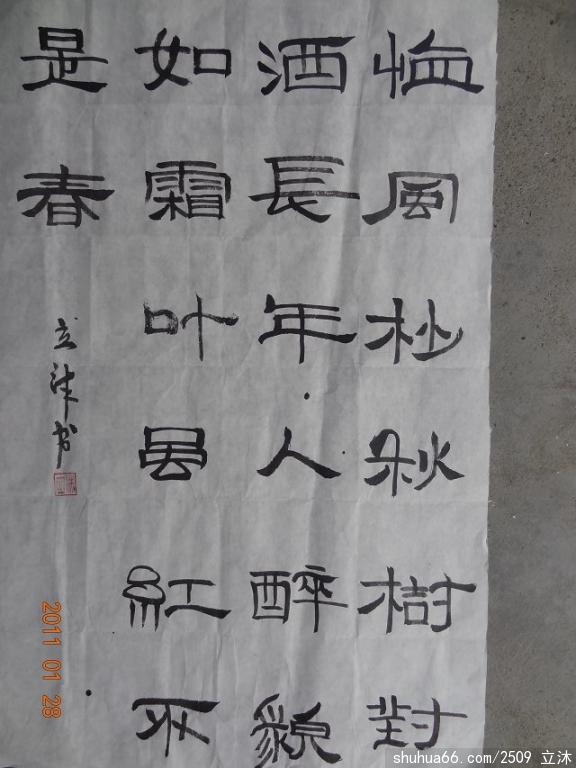 临風杪秋樹對
酒長年人醉貌
如霜叶虽紅不
是春
立沐书
2011 01 28
shuhua66.com/2509 立沐